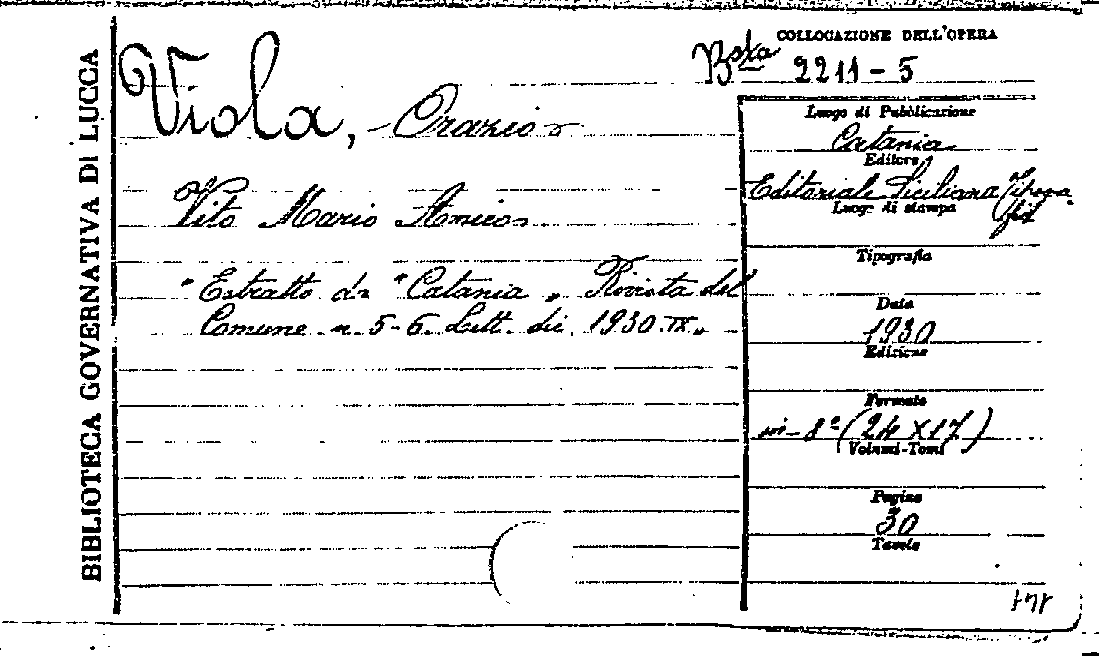 BIBLIOTECA GOVERNATIVA DI LUCCA
COLLOCAZIONE DELL'OPERA
Bsta 2211-5
Viola, Orazio
Vito Mario Amico
"Estratto da "Catania" Rivista del
Comune n. 5-6. Sett. dic. 1930.IX"
Luogo di Pubblicazione
Catania
Editore
Editoriale Siciliana Tipogra
fia
Luogo di stampa
Tipografia
Data
1930
Edizione
Formato
in-8º (24X17)
Volumi-Tomi
Pagine
30
Tavole